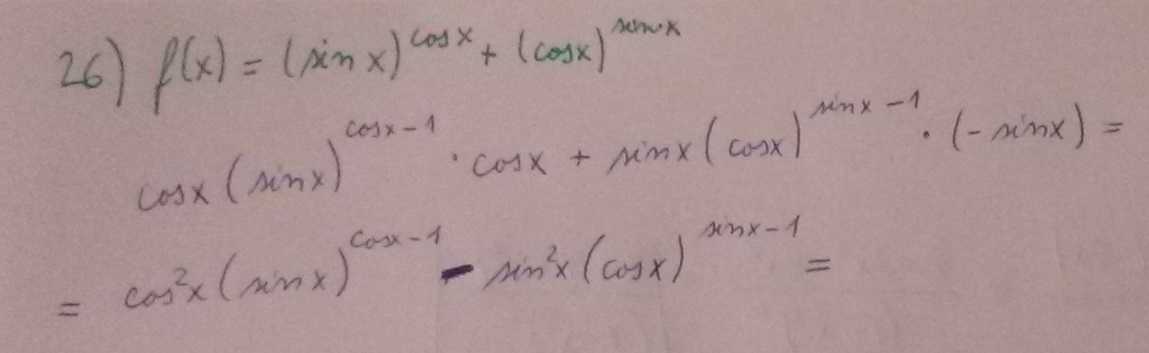 26) f(x) = (sin x)^cosx + (cosx)^sinx
cosx (sinx)^cosx-1 · cosx + sinx (cosx)^sinx-1 · (- sinx) =
= cos²x (sinx)^cosx-1 - sin²x (cosx)^sinx-1 =